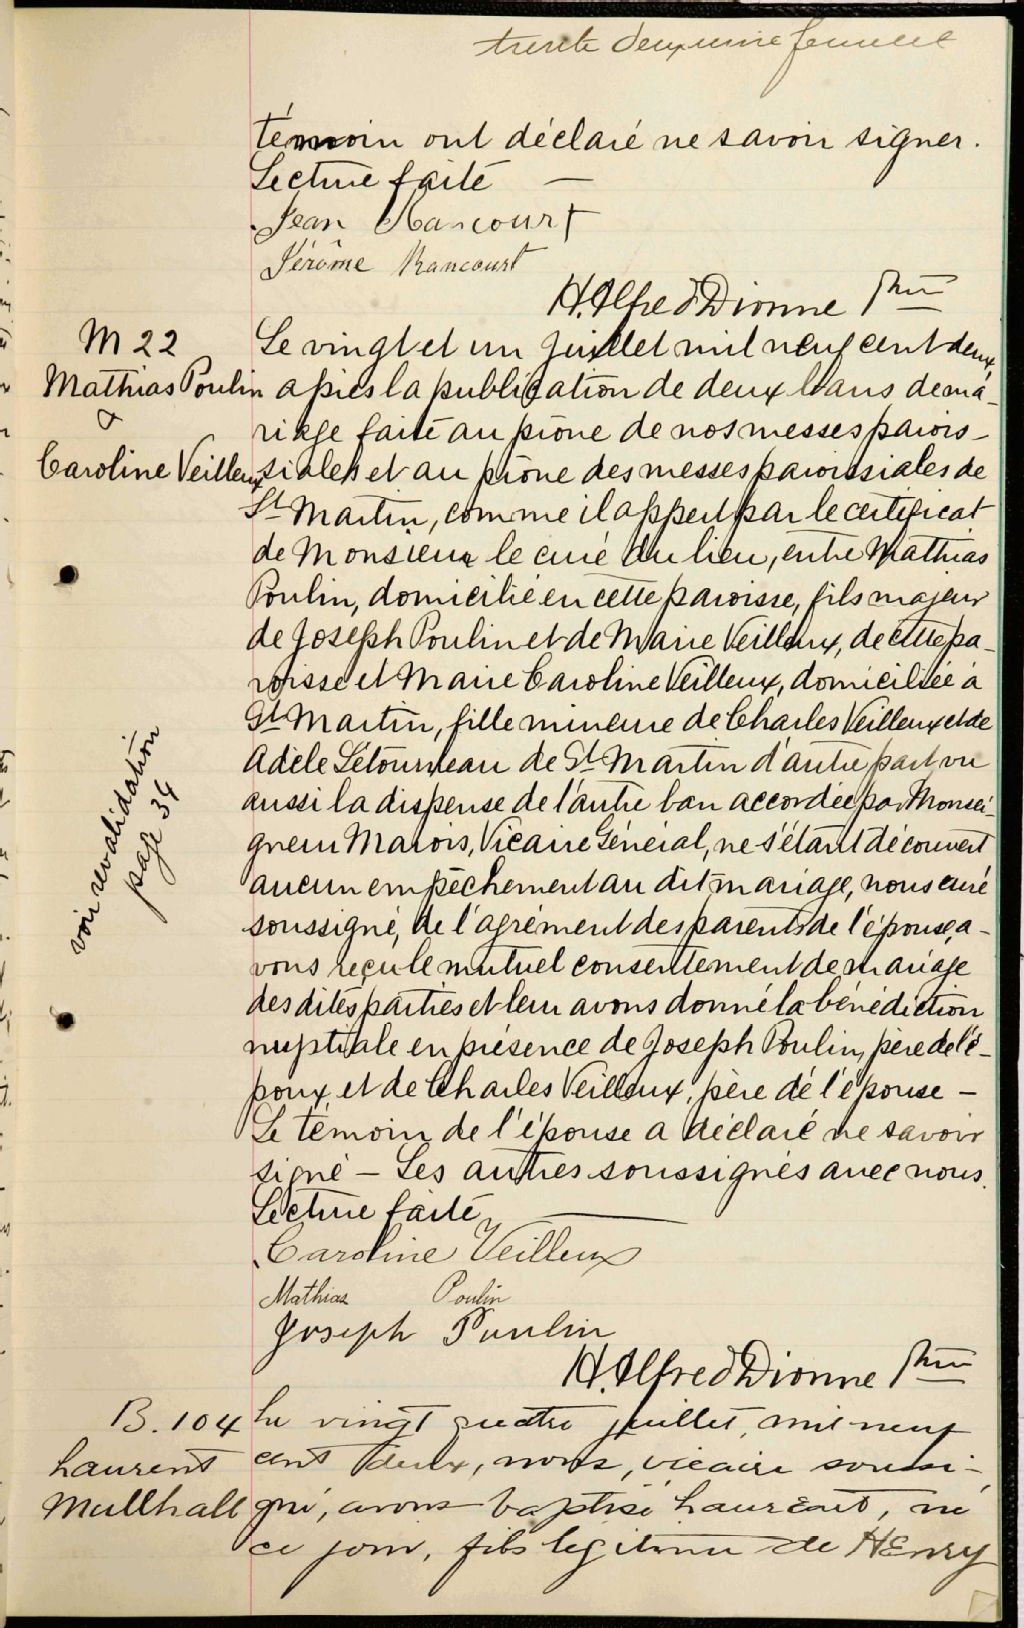 trente deuxième feuillet
témoin ont déclaré ne savoir signer.
Lecture faite —
Jean Rancourt
Jérôme Rancourt
H. Alfred Dionne Ptre
M 22
Mathias Poulin
&
Caroline Veilleux
Le vingt et un Juillet mil neuf cent deux,
après la publication de deux bans de ma-
riage faite au prône de nos messes parois-
siales et au prône des messes paroissiales de
St Martin, comme il appert par le certificat
de Monsieur le curé du lieu, entre Mathias
Poulin, domicilié en cette paroisse, fils majeur
de Joseph Poulin et de Marie Veilleux, de cette pa-
roisse et Marie Caroline Veilleux, domiciliée à
St Martin, fille mineure de Charles Veilleux et de
Adèle Létourneau de St Martin d'autre part vu
aussi la dispense de l'autre ban accordée par Monsei-
gneur Marois, Vicaire Général, ne s'étant découvert
aucun empêchement au dit mariage, nous curé
soussigné, de l'agrément des parents de l'épouse, a-
vons reçu le mutuel consentement de mariage
des dites parties et leur avons donné la bénédiction
nuptiale en présence de Joseph Poulin, père de l'é-
poux, et de Charles Veilleux, père de l'épouse –
Le témoin de l'épouse a déclaré ne savoir
signé – Les autres soussignés avec nous.
Lecture faite,
voir revalidation
page 34
Caroline Veilleux
Mathias Poulin
Joseph Poulin
H. Alfred Dionne Ptre
B. 104
Laurent
Mullhall
Le vingt quatre juillet, mil neuf
cent deux, nous, vicaire soussi-
gné, avons baptisé Laurent, né
ce jour, fils légitime de Henry